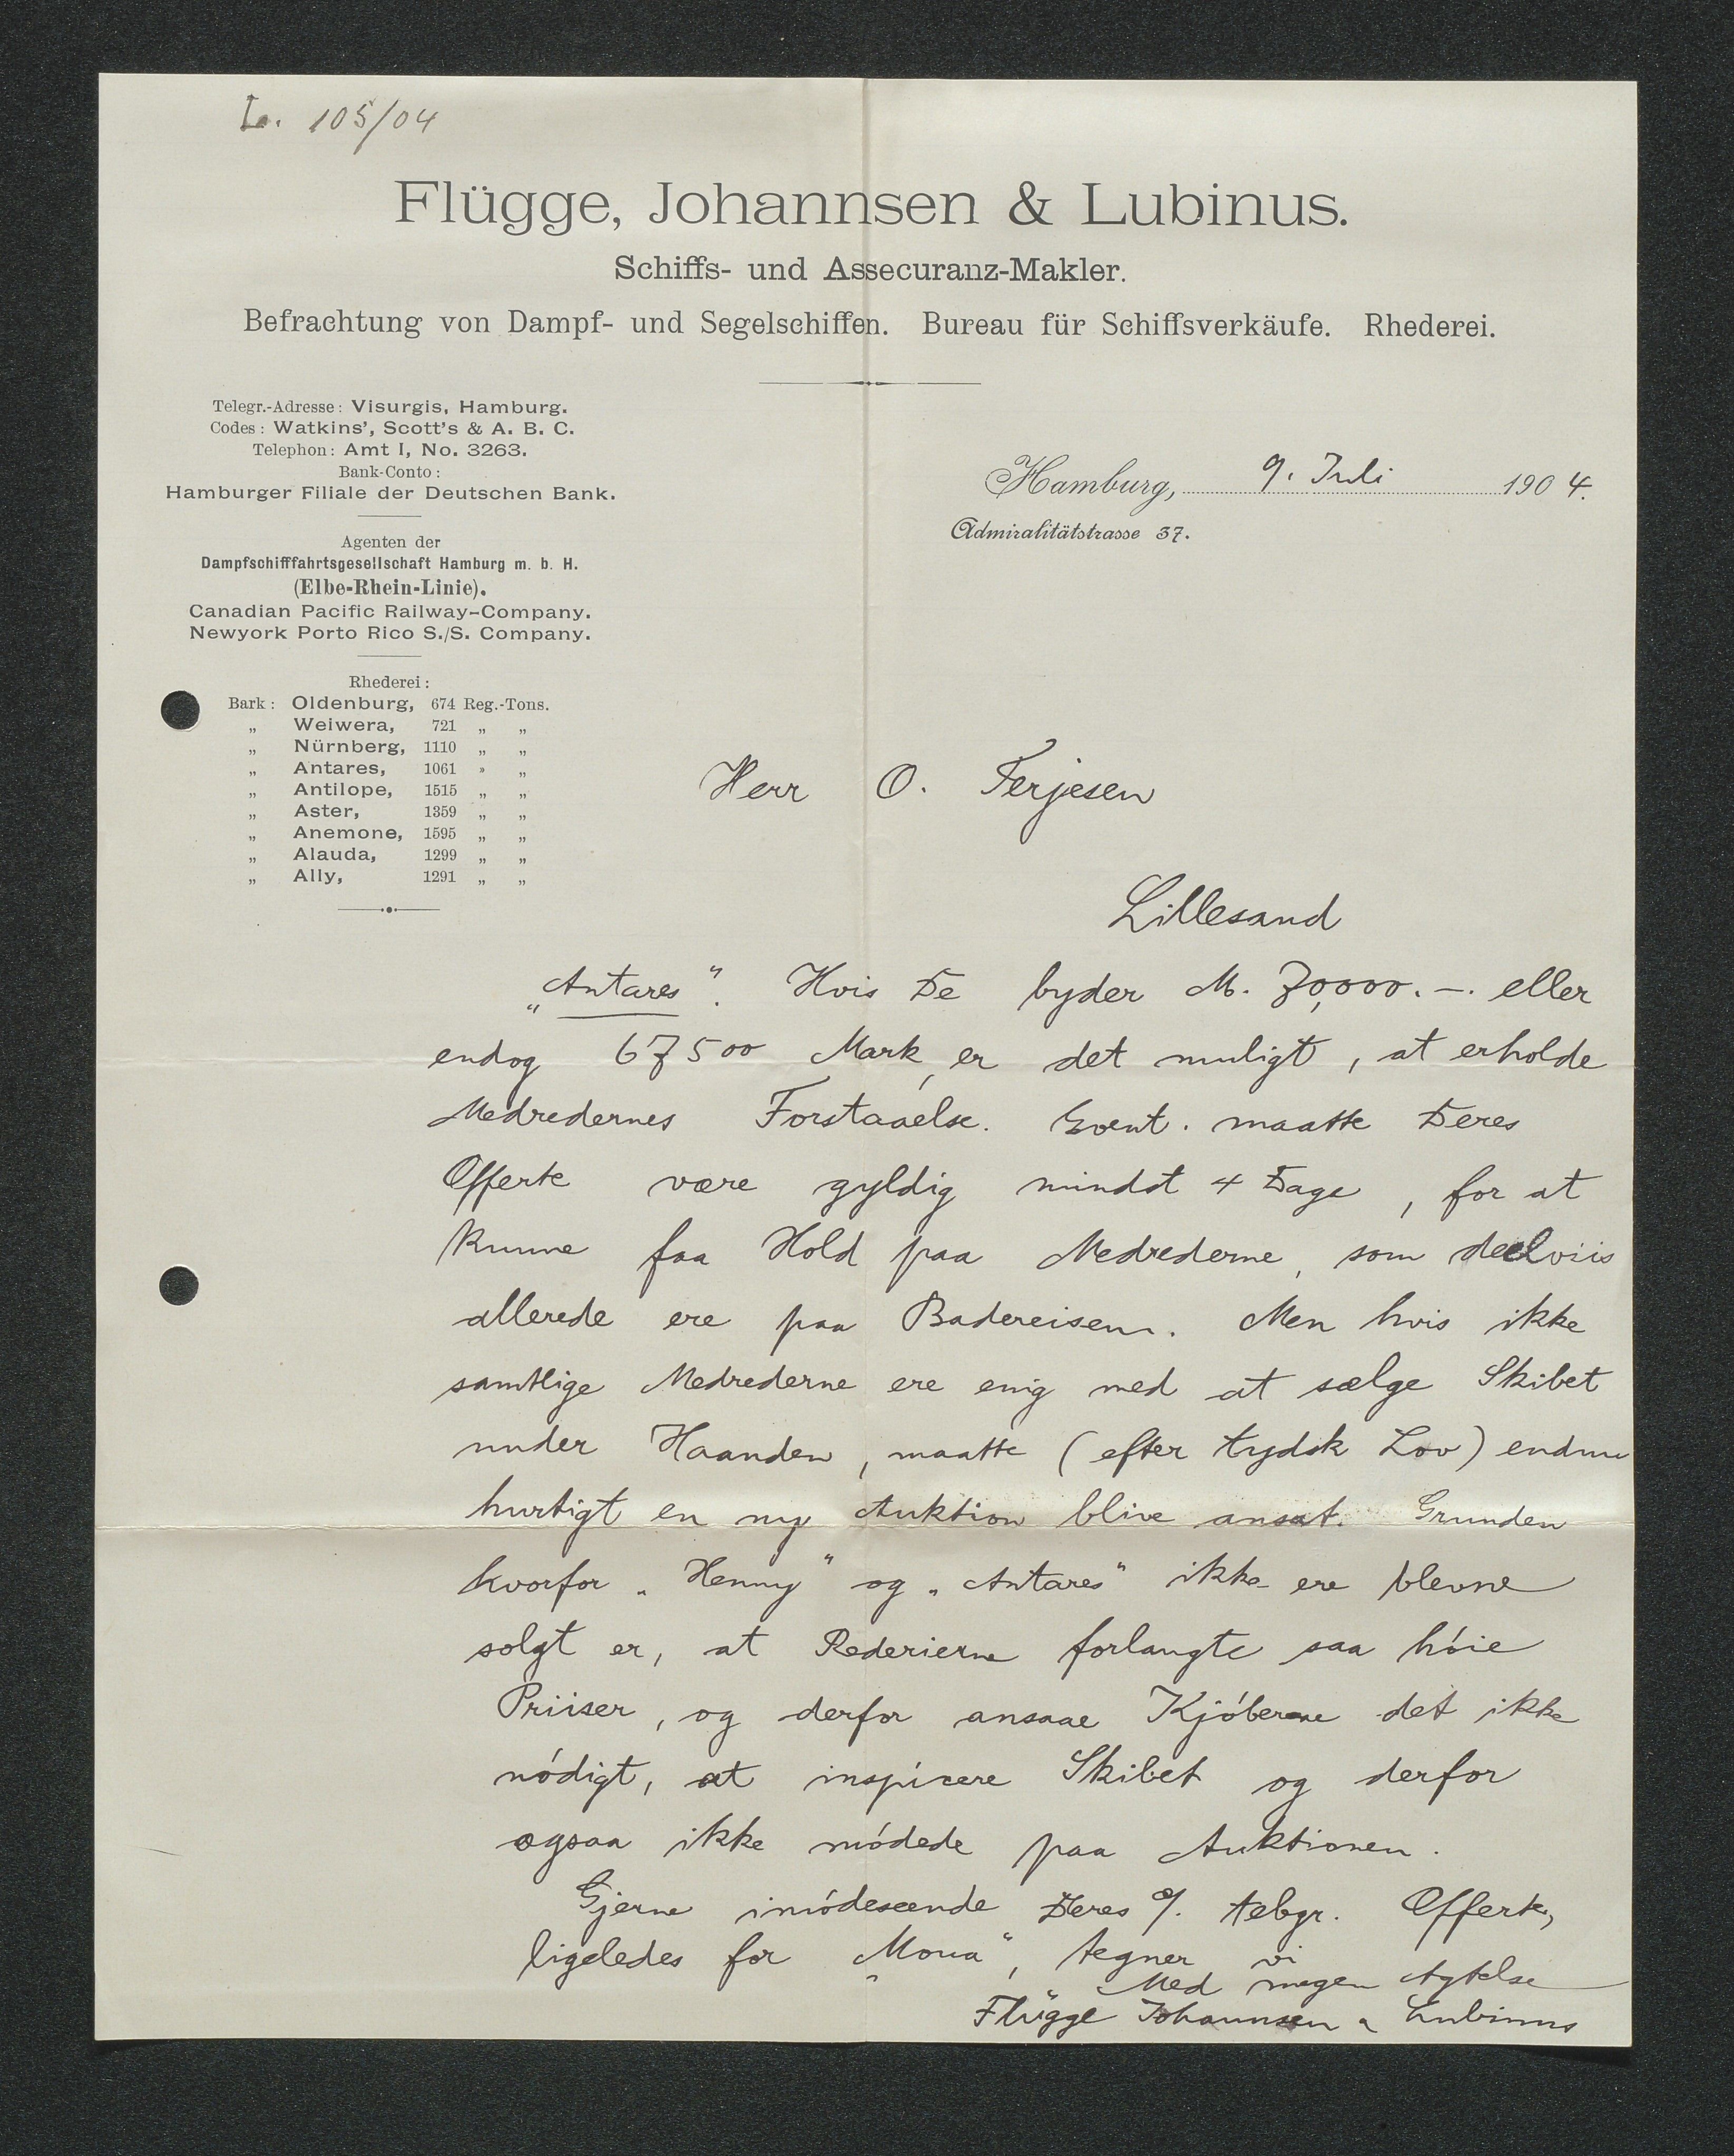 L. 105/04
Flügge, Johannsen & Lubinus.
Schiffs- und Assecuranz-Makler.
Befrachtung von Dampf- und Segelschiffen. Bureau für Schiffsverkäufe. Rhederei.
Telegr.-Adresse: Visurgis, Hamburg.
Codes: Watkins', Scott's & A. B. C.
Telephon: Amt I, No. 3263.
Bank-Conto:
Hamburger Filiale der Deutschen Bank.
Agenten der
Dampfschifffahrtsgesellschaft Hamburg m. b. H.
(Elbe-Rhein-Linie).
Canadian Pacific Railway-Company.
Newyork Porto Rico S./S. Company.
Rhederei:
Bark: Oldenburg, 674 Reg.-Tons.
„ Weiwera, 721 „ „
„ Nürnberg, 1110 „ „
„ Antares, 1061 „ „
„ Antilope, 1515 „ „
„ Aster, 1359 „ „
„ Anemone, 1595 „ „
„ Alauda, 1299 „ „
„ Ally, 1291 „ „
Hamburg, 9. Juli 1904.
Admiralitätstrasse 37.
Herr O. Terjesen
Lillesand
„Antares". Hvis De byder M. 70,000.-. eller
endog 67500 Mark, er det muligt, at erholde
Medredernes Forstaaelse. Event. maatte Deres
Offerte være gyldig mindst 4 Dage, for at
kunne faa Hold paa Medrederne, som deelviis
allerede ere paa Badereisen. Men hvis ikke
samtlige Medrederne ere enig med at sælge Skibet
under Haanden, maatte (efter tydsk Lov) endnu
hurtigt en ny Auktion blive ansat. Grunden
hvorfor „Henny" og „Antares" ikke ere blevne
solgt er, at Rederierne forlangte saa hóie
Priiser, og derfor ansaae Kjóberne det ikke
nódigt, at inspicere Skibet og derfor
ogsaa ikke módede paa Auktionen.
Gjerne imódeseende Deres telegr. Offerte,
ligeledes for „Mona", tegner vi
Med megen Agtelse
Flügge Johannsen & Lubinus